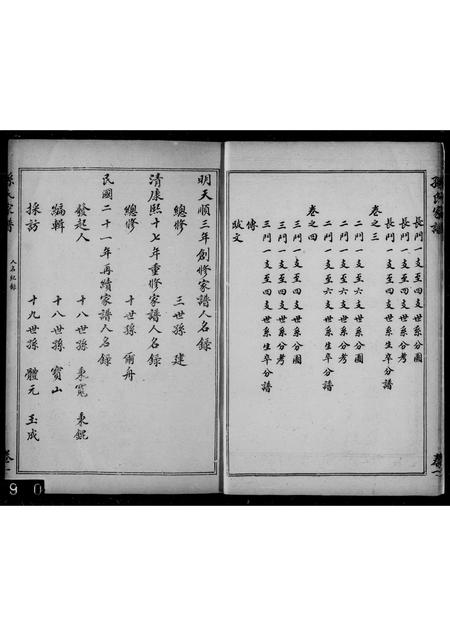 孫氏家譜
長門一支至四支世系分圖
長門一支至四支世系分考
長門一支至四支世系生卒分譜
卷之三
二門一支至六支世系分圖
二門一支至六支世系分考
二門一支至六支世系生卒分譜
卷之四
三門一支至四支世系分圖
三門一支至四支世系分考
三門一支至四支世系生卒分譜
傳
狀文
卷一
明天順三年創修家譜人名錄
總修 三世孫 建
清康熙十七年重修家譜人名錄
總修 十世孫 爾舟
民國二十一年再續家譜人名錄
發起人 十八世孫 秉寬 秉錕
編輯 十八世孫 寶山
採訪 十九世孫 體元 玉成
孫氏家譜
人名紀錄
卷一
9 0